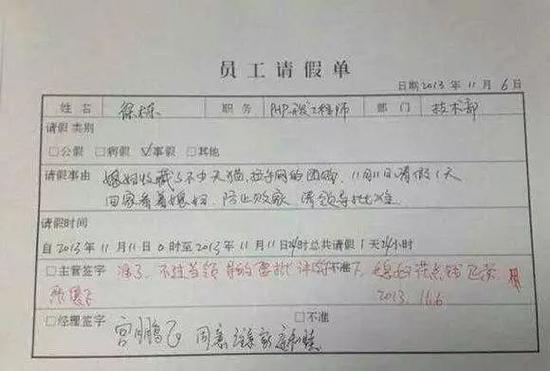 员工请假单
日期2013年11月6日
姓名 徐栋 职务 PHP开发工程师 部门 技术部
请假类别
□公假 □病假 ☑事假 □其他
请假事由 媳妇收藏了不少天猫、拉手网的团购，11月11日请假1天
回家看着媳妇，防止败家 请领导批准.
请假时间
自2013年11月11日0时至2013年11月11日24时总共请假1天24小时
□主管签字 准了、不过当领导的要批评你不准 媳妇花点钱应该
2013.11.6
□经理签字 宫鹏飞 同意 □不准